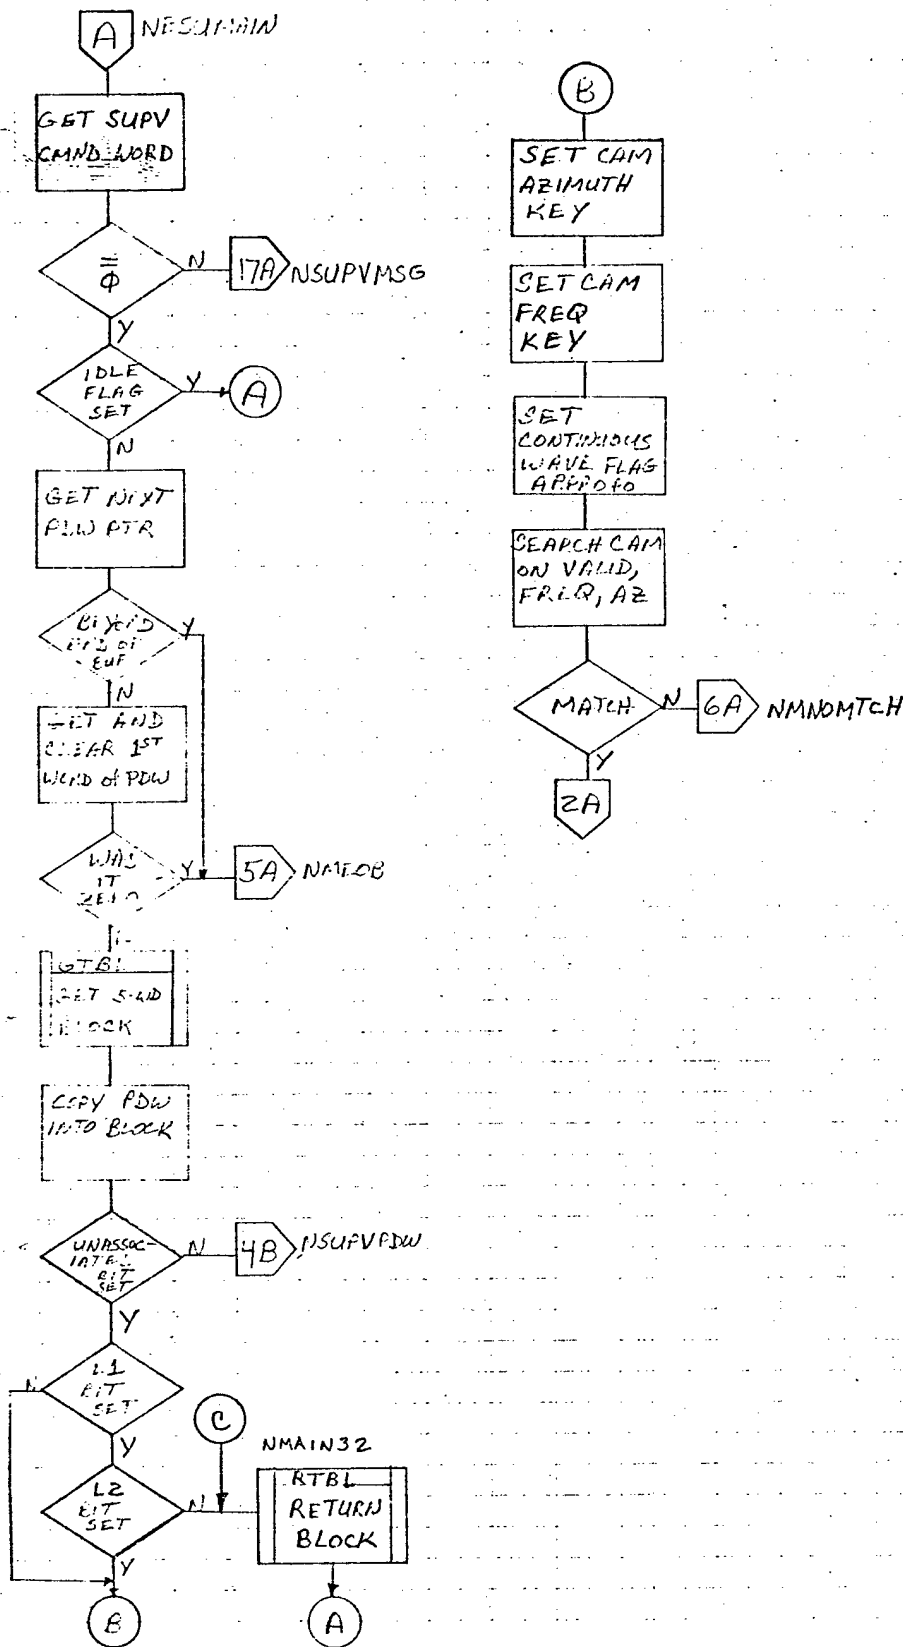 A NESUMAIN
GET SUPV
CMND WORD
=
Φ
N 17A NSUPVMSG
Y
IDLE
FLAG
SET
Y A
N
GET NEXT
PTR
END OF
BUF
Y
N
GET AND
CLEAR 1ST
WORD of PDW
WAS
IT
ZERO
Y 5A NMEOB
GTBL
GET 5-WD
BLOCK
COPY PDW
INTO BLOCK
UNASSOC-
IATED
BIT
SET
N 4B NSUPVPDW
Y
L1
BIT
SET
N
Y
C
NMAIN32
L2
BIT
SET
N
RTBL
RETURN
BLOCK
Y
B
A
B
SET CAM
AZIMUTH
KEY
SET CAM
FREQ
KEY
SET
CONTINUOUS
WAVE FLAG
SEARCH CAM
ON VALID,
FREQ, AZ
MATCH N 6A NMNOMTCH
Y
2A